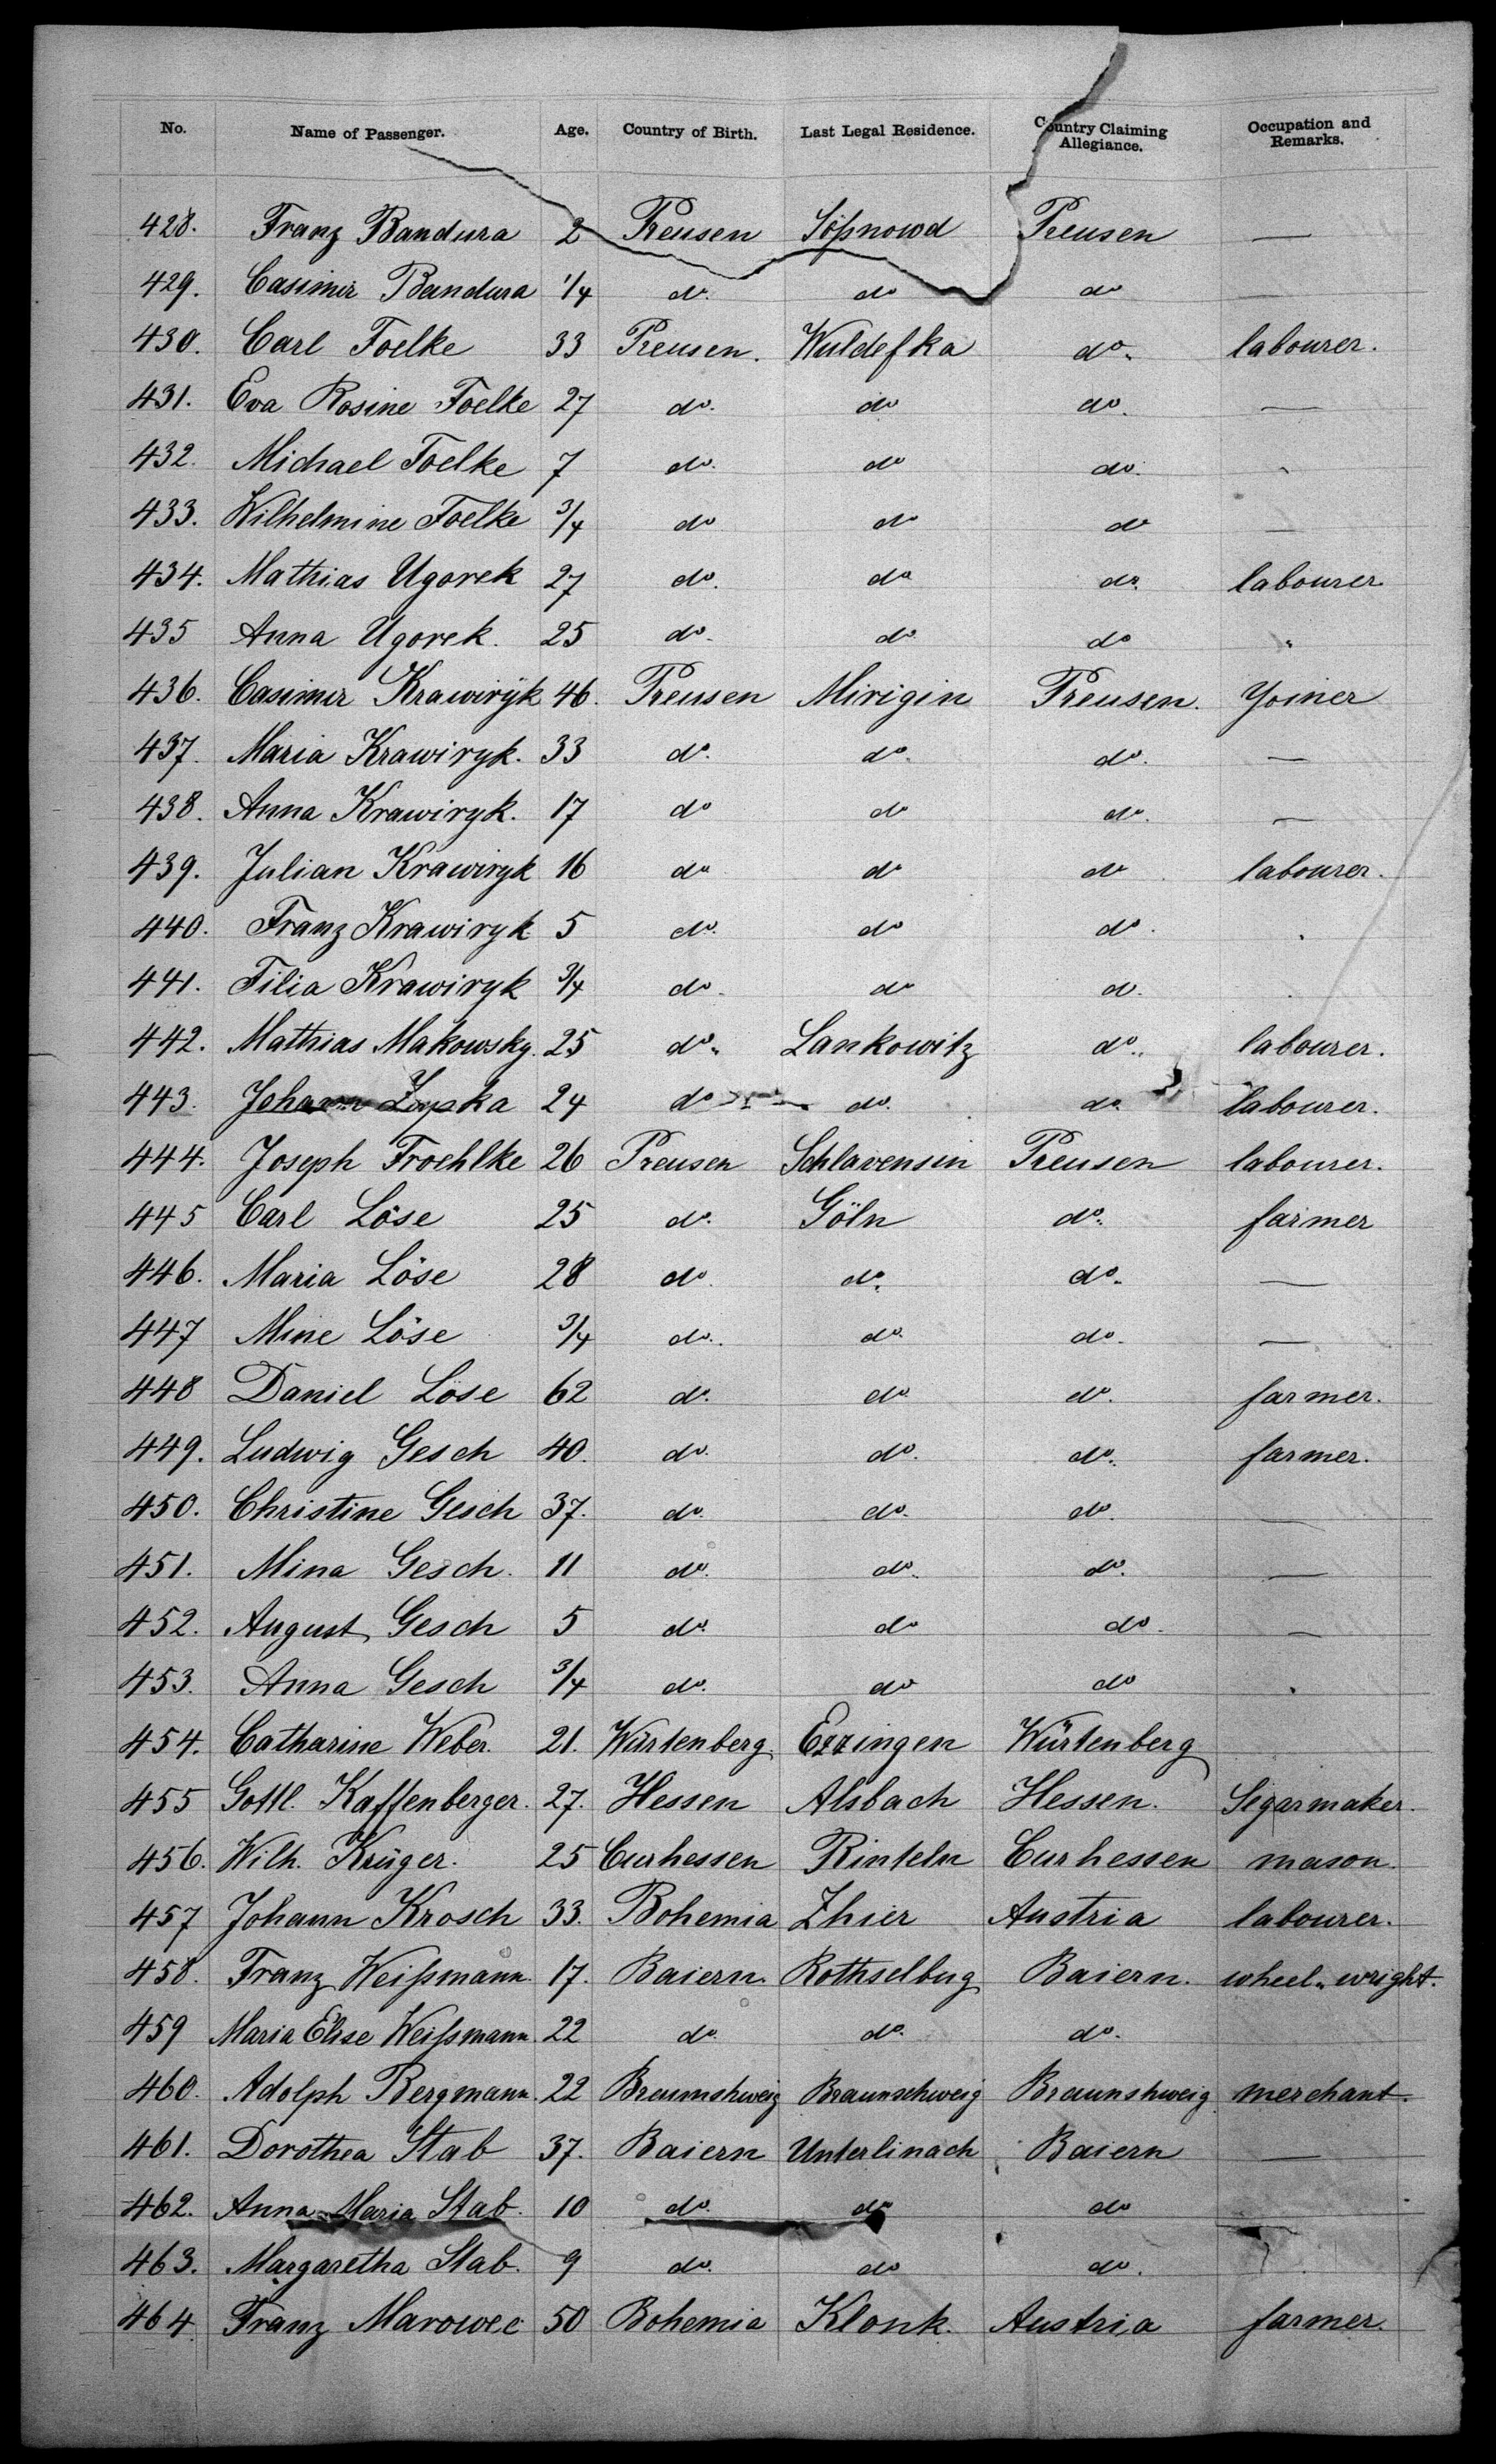 No. Name of Passenger. Age. Country of Birth. Last Legal Residence. Country Claiming Allegiance. Occupation and Remarks.
428. Franz Bandura 2 Preusen Sößnowd Preusen —
429. Casimir Bandura 1/4 do. do do —
430. Carl Foelke 33 Preusen. Wuldefka do. labourer.
431. Eva Rosine Foelke 27 do. do do. —
432. Michael Foelke 7 do. do do.
433. Wilhelmine Foelke 3/4 do do do —
434. Mathias Ugorek 27 do. do do. labourer
435 Anna Ugorek. 25 do. do. do "
436. Casimir Krawiryk 46. Preusen Mirigin Preusen. Yoiner
437. Maria Krawiryk. 33 do. do. do. —
438. Anna Krawiryk. 17 do do do. —
439. Julian Krawiryk 16 do do do labourer.
440. Franz Krawiryk 5 do. do do.
441. Filia Krawiryk 3/4 do. do do.
442. Mathias Makowsky. 25 do. Lankowitz do. labourer.
443. Johann Zupka 24 do do. do. labourer.
444. Joseph Froehlke 26 Preusen Schlavensin Preusen labourer.
445 Carl Löse 25 do. Göln do. farmer
446. Maria Löse 28 do. do. do. —
447 Mine Löse 3/4 do. do. do. —
448 Daniel Löse 62 do. do do. farmer.
449. Ludwig Gesch 40. do. do. do. farmer.
450. Christine Gesch 37. do. do. do. —
451. Mina Gesch. 11 do. do. do. —
452. August Gesch 5 do. do do. —
453. Anna Gesch 3/4 do. do do
454. Catharine Weber. 21. Würtenberg Ezzingen Würtenberg
455 Gottl. Kaffenberger. 27. Hessen Alsbach Hessen. Segarmaker.
456. Wilh. Krüger. 25 Curhessen Rinteln Curhessen mason.
457 Johann Krosch 33. Bohemia Zhier Austria labourer.
458. Franz Weißmann. 17. Baiern. Rothselbug Baiern. wheel„wright.
459 Maria Elise Weißmann. 22 do. do. do.
460. Adolph Bergmann. 22 Braunshweig Braunschweig Braunshweig merchant.
461. Dorothea Stab 37. Baiern Unterlinach Baiern —
462. Anna Maria Stab. 10 do. do do
463. Margaretha Stab. 9 do. do do.
464. Franz Marowec 50 Bohemia Klonk. Austria farmer.